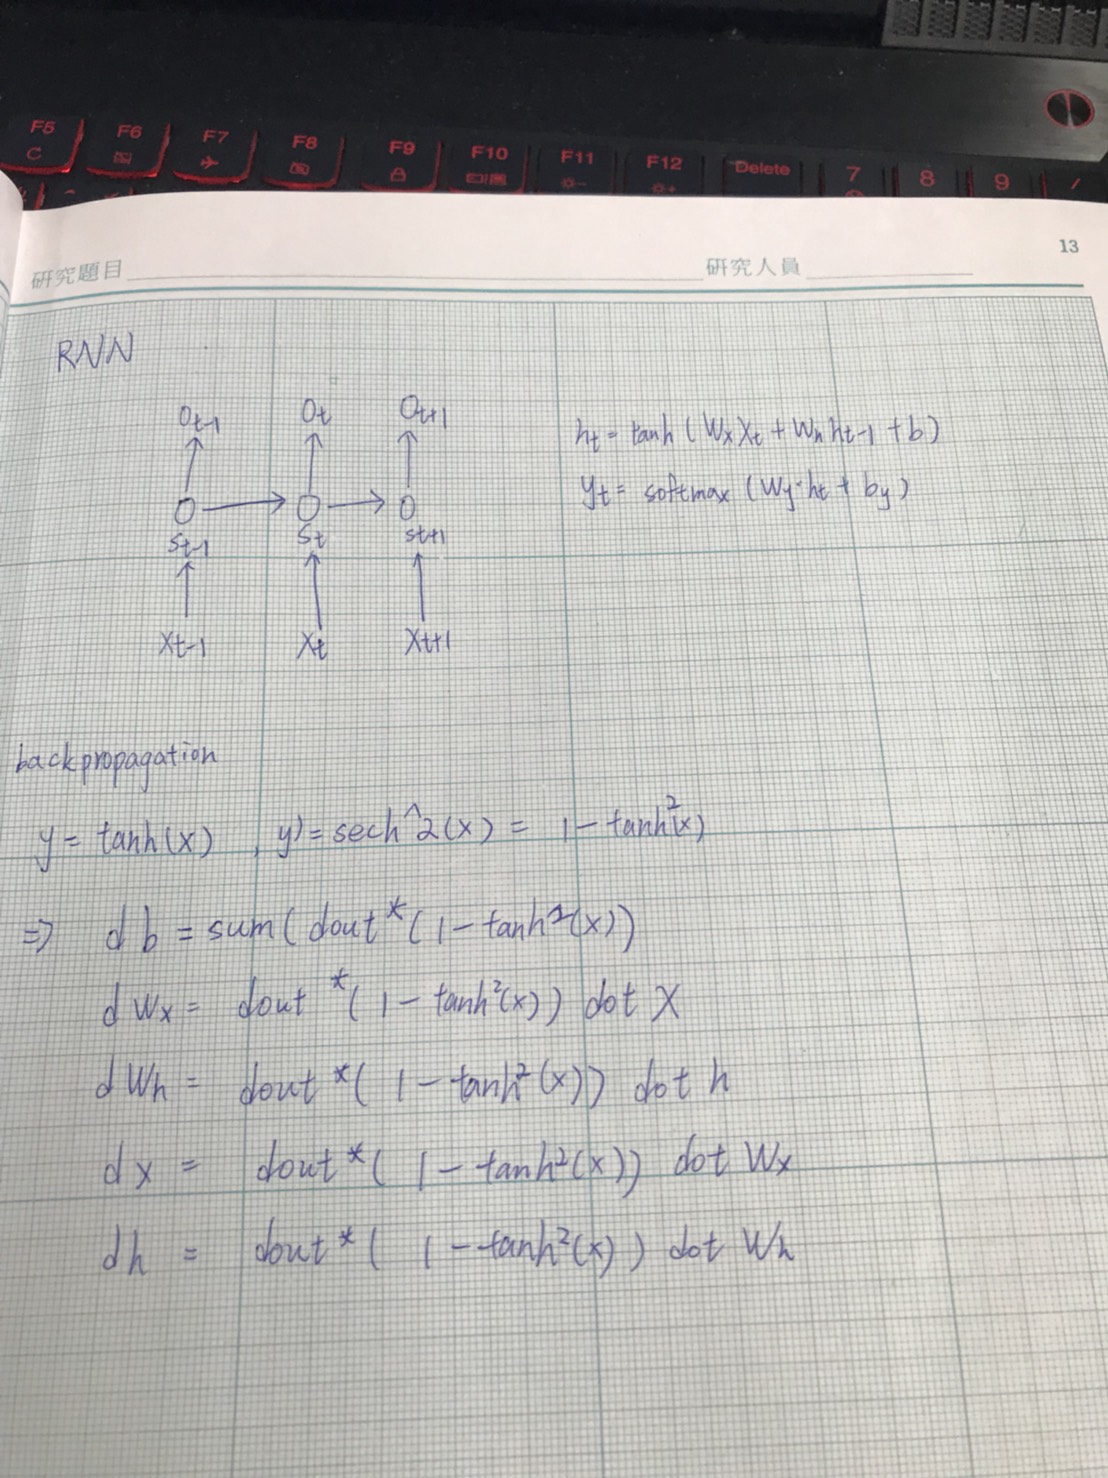 F5 F6 F7 F8 F9 F10 F11 F12 Delete 7 8 9 /
13
研究題目 研究人員
RNN
Ot-1 Ot Ot+1
ht = tanh (Wx Xt + Wh ht-1 + b)
yt = softmax (Wy·ht + by)
St-1 St St+1
Xt-1 Xt Xt+1
backpropagation
y = tanh(x) , y' = sech^2(x) = 1 - tanh²(x)
⇒ db = sum(dout*(1-tanh²(x))
dWx = dout *(1-tanh²(x)) dot X
dWh = dout *(1-tanh²(x)) dot h
dx = dout *(1-tanh²(x)) dot Wx
dh = dout *(1-tanh²(x)) dot Wh